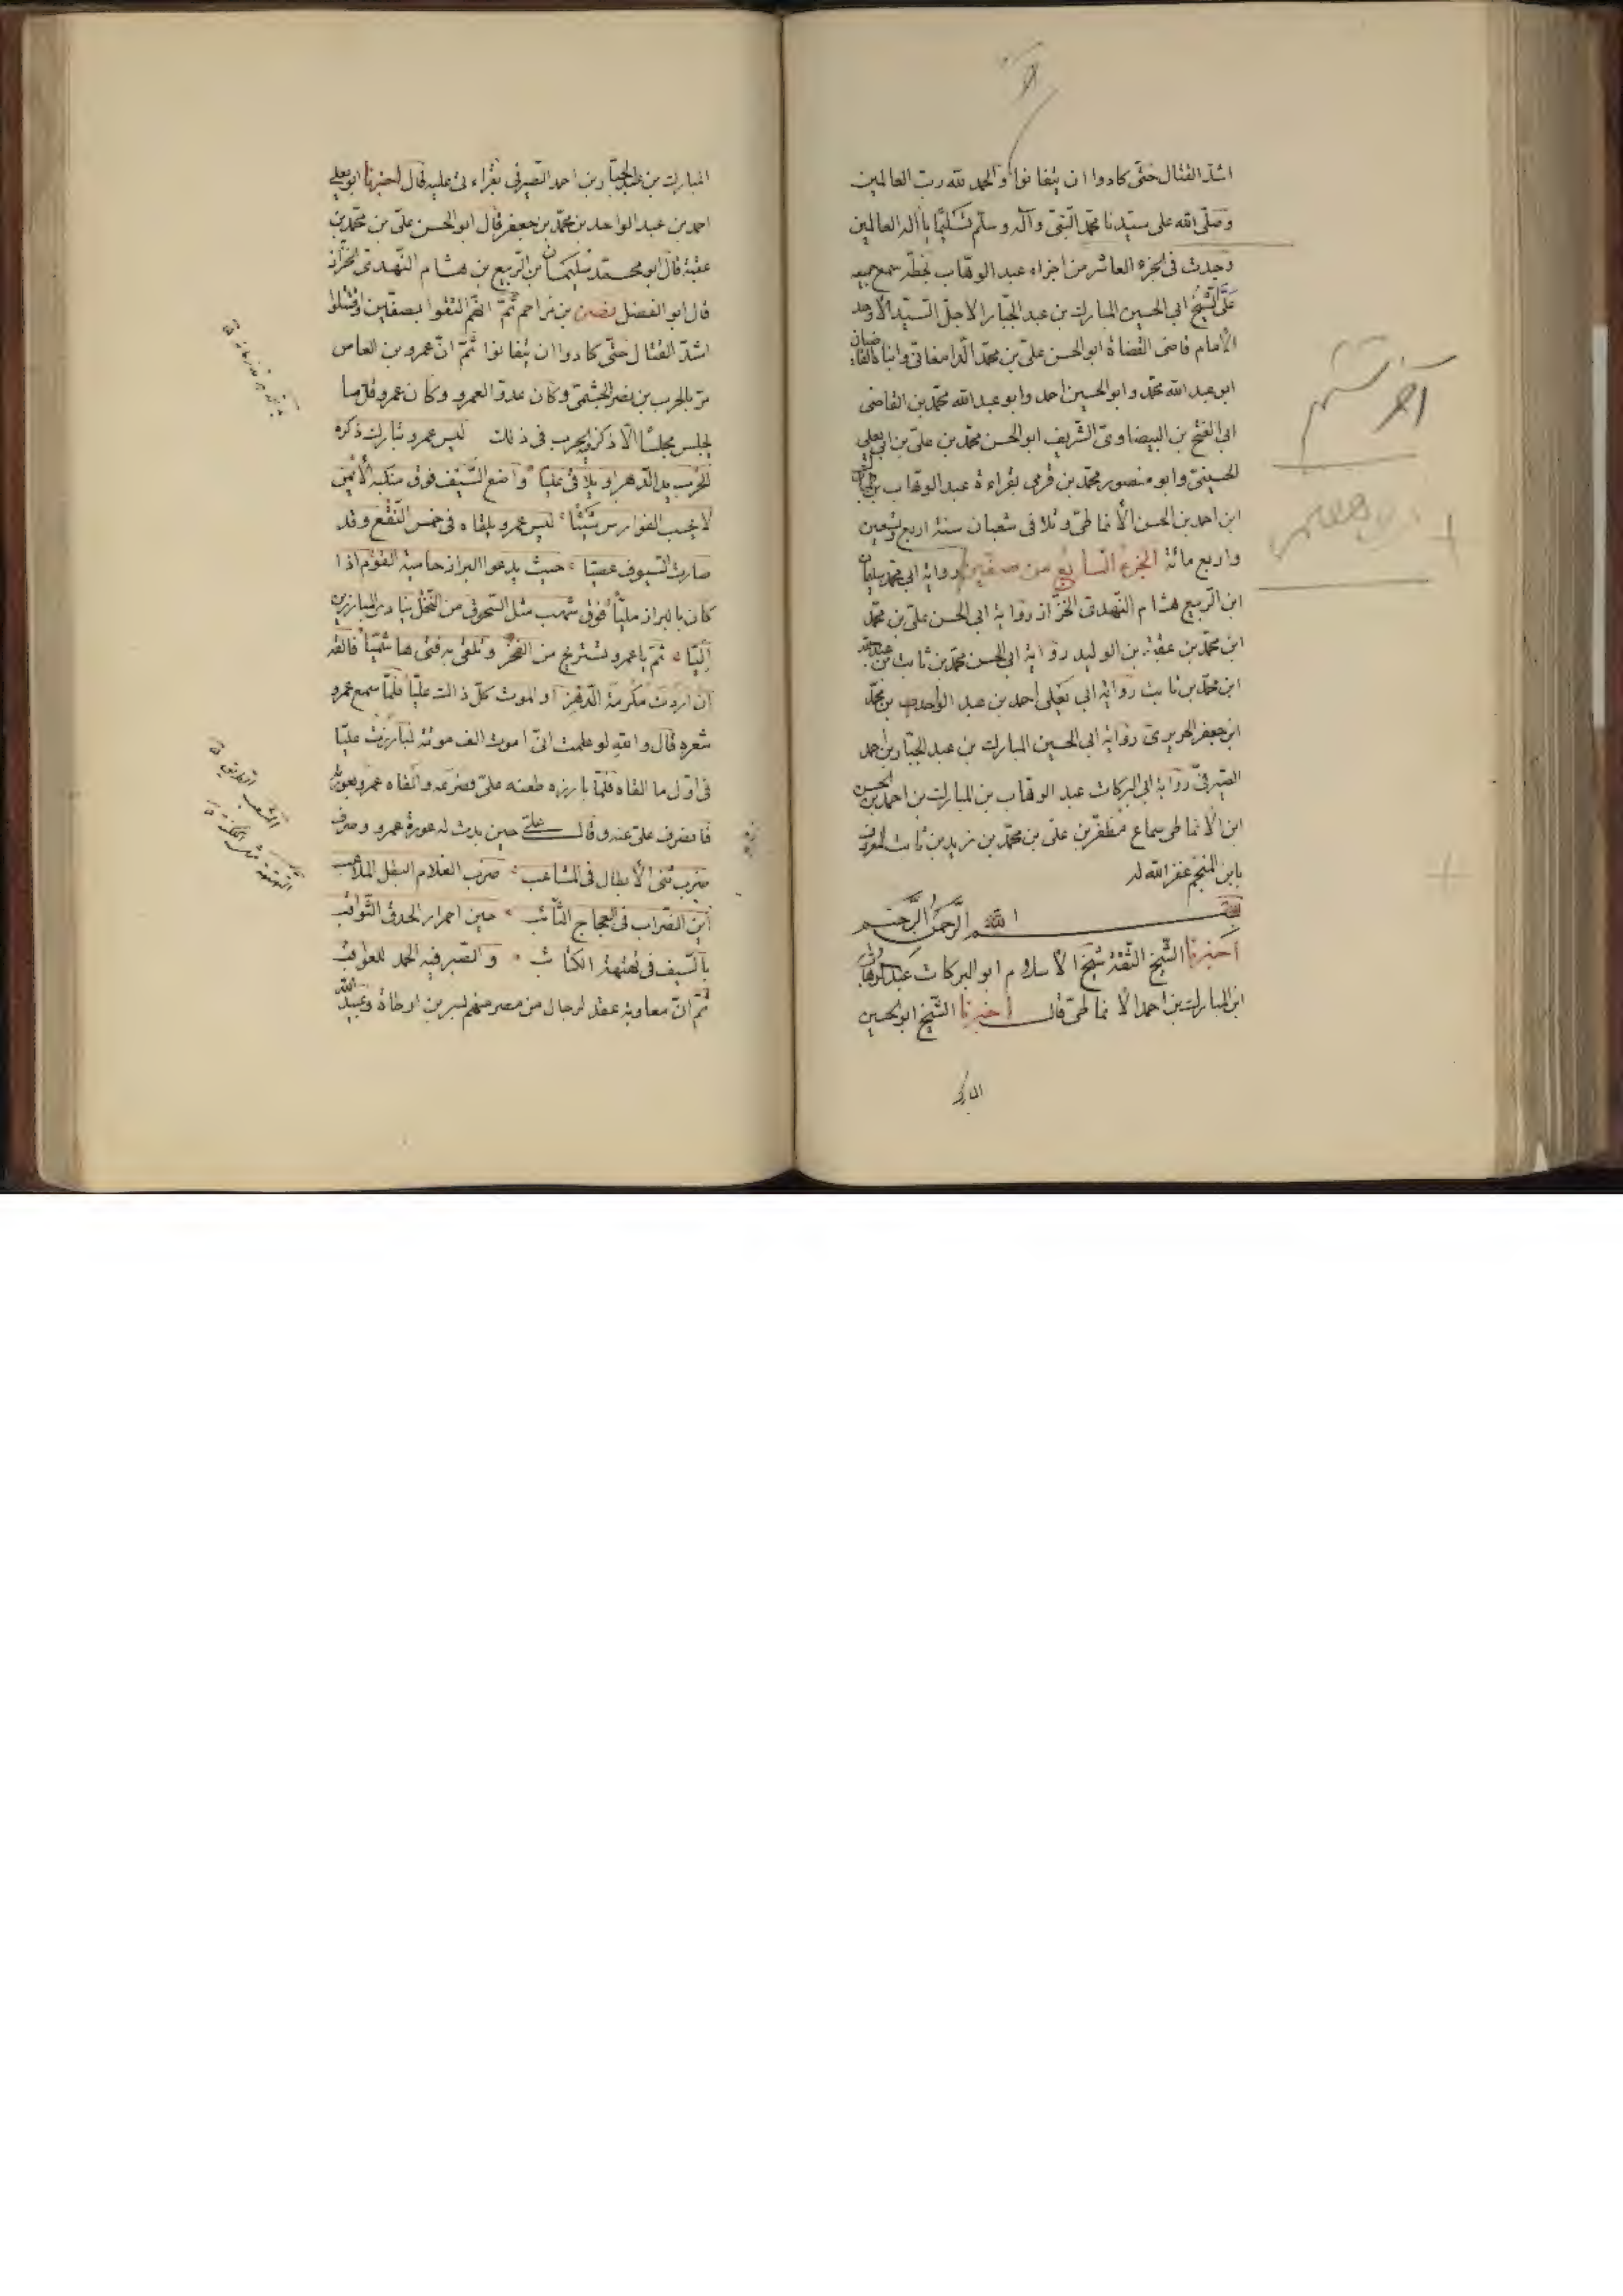 اشدّ القتال حتّى كادوا ان يتفانوا والحمد لله ربّ العالمين
وصلّى الله على سيّدنا محمّد النّبيّ وآله وسلّم تسليمًا يا اله العالمين
وجدت فى الجزء العاشر من اجزاء عبد الوهّاب بخطّه سمع جميعه
على الشّيخ ابى الحسين المبارك بن عبد الجبّار الاجلّ السّيّد الأوحد
الامام قاضى القضاة ابو الحسن علىّ بن محمّد الدّامغانىّ وابناه القاضيان
ابو عبد الله محمّد وابو الحسين احمد وابو عبد الله محمّد بن القاضى
ابى الفتح بن البيضاوىّ الشّريف ابو الحسن محمّد بن علىّ بن ابى يعلى
الحسينىّ وابو منصور محمّد بن قرمى بقراءة عبد الوهّاب بن المبارك
ابن احمد بن الحسن الأنماطىّ وذلك فى شعبان سنة اربع وتسعين
واربع مائة الجزء السّابع من صفّين رواية ابى محمّد سليمان
ابن الرّبيع هشام النّهدىّ الخزّاز رواية ابى الحسن علىّ بن محمّد
ابن محمّد بن عقبة بن الوليد رواية ابى الحسن محمّد بن ثابت بن عبد الله
ابن محمّد بن ثابت رواية ابى يعلى احمد بن عبد الواحد بن محمّد
ابن جعفر الحريرى رواية ابى الحسين المبارك بن عبد الجبّار بن احمد
الصّيرفىّ رواية ابى البركات عبد الوهّاب بن المبارك بن احمد بن الحسن
ابن الأنماطى سماع مظفّر بن علىّ بن محمّد بن زيد بن ثابت المعروف
بابن المنجّم غفر الله له
بسم الله الرّحمن الرّحيم
اخبرنا الشّيخ الثّقة شيخ الأسلام ابو البركات عبد الوهّاب
ابن المبارك بن احمد الأنماطىّ قال اخبرنا الشّيخ ابو الحسين
المبارك
المبارك بن عبد الجبّار بن احمد الصّيرفى بقراءتى عليه قال اخبرنا ابو يعلى
احمد بن عبد الواحد بن محمّد بن جعفر قال ابو الحسن علىّ بن محمّد بن
عقبة قال ابو محمّد سليمان بن الرّبيع بن هشام النّهدىّ الخزّاز
قال ابو الفضل نصر بن مزاحم ثمّ انّهم التقوا بصفّين واقتتلوا
اشدّ القتال حتّى كادوا ان يتفانوا ثمّ انّ عمرو بن العاص
مرّ بالحرب بن نصر الجشمىّ وكان عدوّا لعمرو وكان عمرو قلّ ما
يجلس مجلسًا الّا ذكر الحرب فى ذلك ليس عمرو بتارك ذكره
للحرب يد الدّهر او يلاقى عليّا واضع السّيف فوق منكبه الأيمن
لا يحسب الفوارس شيئًا ليس عمرو يلقاه فى خمس النّقع وقد
صارت السّيوف عصيّا حيث يدعوا البراز حامية القوم اذا
كان بالبراز مليّا فوق شهب مثل السّحوق من النّخل ينادى المبارزين
اليّا ثمّ يا عمرو تستريح من الفخر وتلقى به فتى هاشميّا فالقه
ان اردت مكرمة الدّهر او الموت كلّ ذلك عليّا فلمّا سمع عمرو
شعره قال والله لو علمت انّى اموت الف موتة لبارزت عليّا
فى اوّل ما القاه فلمّا بارزه طعنه علىّ فصرعه واتّقاه عمرو بعورته
فانصرف علىّ عنه وقال علىّ حين بدت له عورة عمرو وصرف
ضرب ثنى الأبطال فى المشاعب ضرب الغلام البطل الملاعب
اين الضّراب فى العجاج الثّائب حين احمرار الحدق الثّواقب
بالسّيف فى نهنهة الكتائب والصّبر فيه الحمد للعواقب
ثمّ انّ معاوية عقد لرجال من مصر منهم بسر بن ارطاة وعبيد الله